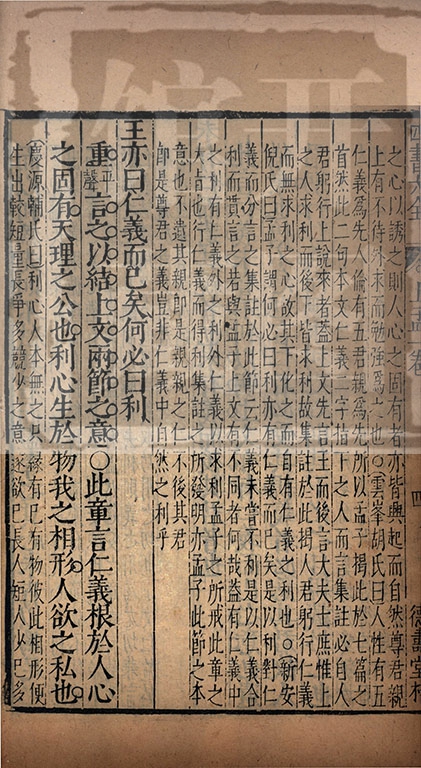 之心以誘之則人心之固有者亦皆興起而自然尊君親
上有不待外求而勉強爲之也○雲峯胡氏曰人性有五
仁義爲先人倫有五君親爲先所以孟子揭此於七篇之
首然此二句本文仁義二字指下之人而言集註必自人
君躬行上說來者蓋上文先言王而後言大夫士庶惟上
之人求利而後下皆求利故集註於此揭人君躬行仁義
而無求利之心故其下化之而自有仁義之利也○新安
倪氏曰孟子謂何必曰利亦有仁義而已矣是以利對仁
義而分言之集註於此節云仁義未嘗不利是以仁義合
利而貫言之若與孟子上文有不同者何哉蓋有仁義中
之利有仁義外之利外仁義以求利孟子之所戒此章之
大旨也行仁義而得利集註之所發明亦孟子此節之本
意也不遺其親即是親親之仁不後其君
即是尊君之義豈非仁義中自然之利乎
王亦曰仁義而已矣何必曰利
重平聲言之以結上文兩節之意○此章言仁義根於人心
之固有天理之公也利心生於物我之相形人欲之私也
慶源輔氏曰利心人本無之只緣有己有物彼此相形便
生出較短量長爭多競少之意遂欲己長人短人少己多
四書
德書堂